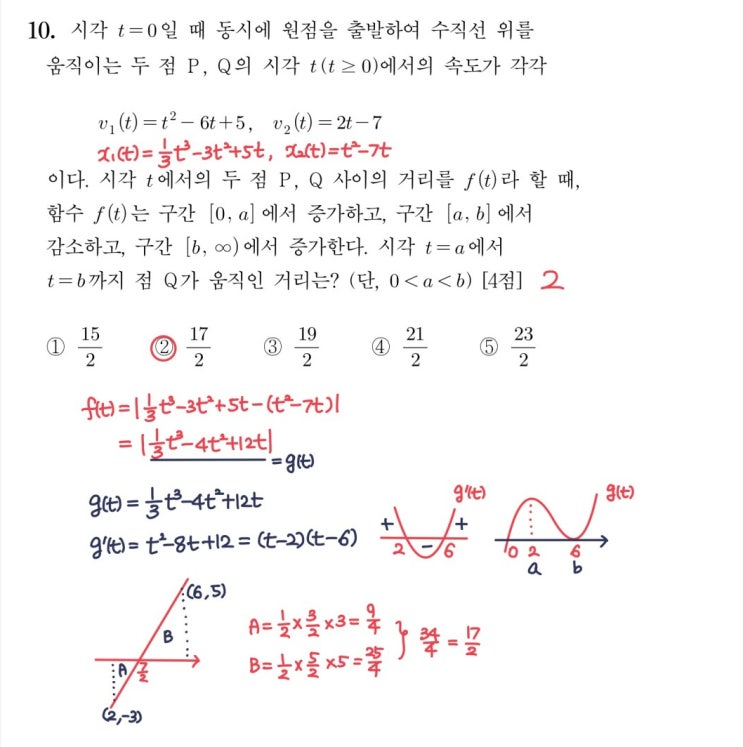 10. 시각 t=0일 때 동시에 원점을 출발하여 수직선 위를
움직이는 두 점 P, Q의 시각 t(t≥0)에서의 속도가 각각
v₁(t)=t²-6t+5, v₂(t)=2t-7
x₁(t)=⅓t³-3t²+5t, x₂(t)=t²-7t
이다. 시각 t에서의 두 점 P, Q 사이의 거리를 f(t)라 할 때,
함수 f(t)는 구간 [0, a]에서 증가하고, 구간 [a, b]에서
감소하고, 구간 [b, ∞)에서 증가한다. 시각 t=a에서
t=b까지 점 Q가 움직인 거리는? (단, 0<a<b) [4점] 2
① 15/2 ② 17/2 ③ 19/2 ④ 21/2 ⑤ 23/2
f(t)=|⅓t³-3t²+5t-(t²-7t)|
=|⅓t³-4t²+12t|
=g(t)
g(t)=⅓t³-4t²+12t
g'(t)=t²-8t+12=(t-2)(t-6)
g'(t)
+ +
2 - 6
g(t)
0 2 6
a b
(6,5)
B
A 7/2
(2,-3)
A=1/2×3/2×3=9/4
B=1/2×5/2×5=25/4
} 34/4=17/2